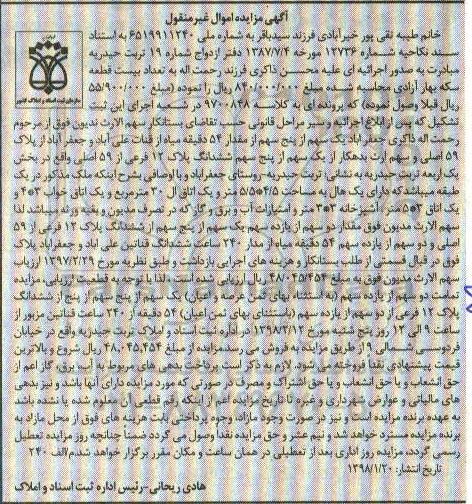 آگهی مزایده اموال غیر منقول
خانم طیبه نقی پور خیرآبادی فرزند سیدباقر به شماره ملی ۶۵۱۹۹۱۱۲۴۰ به استناد
سند نکاحیه شماره ۱۲۷۳۶ مورخه ۱۳۸۷/۷/۴ دفتر ازدواج شماره ۱۹ تربت حیدریه
مبادرت به صدور اجرائیه ای علیه محسن ذاکری فرزند رحمت اله به تعداد بیست قطعه
سکه بهار آزادی محاسبه شده مبلغ ۸۴۰/۰۰۰/۰۰۰ ریال را نموده (مبلغ ۵۵/۹۰۰/۰۰۰
ریال قبلا وصول نموده) که پرونده ای به کلاسه ۹۷۰۰۸۴۸ در شعبه اجرای این ثبت
تشکیل که پس از ابلاغ اجرائیه و سیر مراحل قانونی حسب تقاضای بستانکار سهم الارث مدیون فوق از مرحوم
رحمت اله ذاکری جعفرآباد یک سهم از پنج سهم از مقدار ۵۴ دقیقه میاه از قنات علی آباد و جعفرآباد از پلاک
۵۹ اصلی و سهم ارث بدهکار از یک سهم از پنج سهم ششدانگ پلاک ۱۲ فرعی از ۵۹ اصلی واقع در بخش
یک اربعه تربت حیدریه به نشانی: تربت حیدریه-روستای جعفرآباد و با اوصافی بشرح اینکه ملک مذکور در یک
طبقه میباشدکه دارای یک هال به مساحت ۴/۵*۵/۵ متر و یک اتاق ال ۳۰ مترمربع و یک اتاق خواب ۳*۴ و
یک اتاق ۳*۵ متر، آشپزخانه ۳*۳ متر و امتیازات آب و برق و گاز که در تصرف مدیون و بقیه ورثه میباشد لذا
سهم الارث مدیون فوق مقدار دو سهم از یازده سهم یک سهم از پنج سهم از ششدانگ پلاک ۱۲ فرعی از ۵۹
اصلی و دو سهم از یازده سهم ۵۴ دقیقه میاه از مدار ۲۴۰ ساعت ششدانگ قناتین علی آباد و جعفرآباد پلاک
فوق در قبال قسمتی از طلب بستانکار و هزینه های اجرایی بازداشت و طبق نظریه مورخ ۱۳۹۷/۲/۲۹ ارزیاب
سهم الارث مدیون فوق به مبلغ ۴۸/۰۴۵/۴۵۴ ریال ارزیابی شده است لذا با توجه به قطعیت ارزیابی، مزایده
تمامت دو سهم از یازده سهم (به استثناء بهای ثمن عرصه و اعیان) یک سهم از پنج سهم از پنج از ششدانگ
پلاک ۱۲ فرعی از دو سهم از یازده سهم (باستثنای بهای ثمن اعیان) ۵۴ دقیقه از ۲۴۰ ساعت قناتین مزبور از
ساعت ۹ الی ۱۲ روز پنج شنبه مورخ ۱۳۹۸/۲/۱۲ در اداره ثبت اسناد و املاک تربت حیدریه واقع در خیابان
فردوسی شمالی ۹ از طریق مزایده به فروش می رسد.مزایده از مبلغ ۴۸,۰۴۵,۴۵۴ ریال شروع و بالاترین
قیمت پیشنهادی نقداً فروخته می شود، لازم به ذکر است پرداخت بدهی های مربوط به آب، برق، گاز اعم از
حق انشعاب و یا حق انشعاب و یا حق اشتراک و مصرف در صورتی که مورد مزایده دارای آنها باشد و نیز بدهی
های مالیاتی و عوارض شهرداری و غیره تا تاریخ مزایده اعم از اینکه رقم قطعی آن معلوم شده یا نشده باشد
به عهده برنده مزایده است و نیز در صورت وجود مازاد، وجوه پرداختی بابت هزینه های فوق از محل مازاد به
برنده مزایده مسترد خواهد شد و نیم عشر و حق مزایده نقداً وصول می گردد ضمناً چنانچه روز مزایده تعطیل
رسمی گردد، مزایده روز اداری بعد از تعطیلی در همان ساعت و مکان مقرر برگزار خواهد شد./الف ۲۴۰
تاریخ انتشار: ۱۳۹۸/۱/۲۰
هادی ریحانی-رئیس اداره ثبت اسناد و املاک